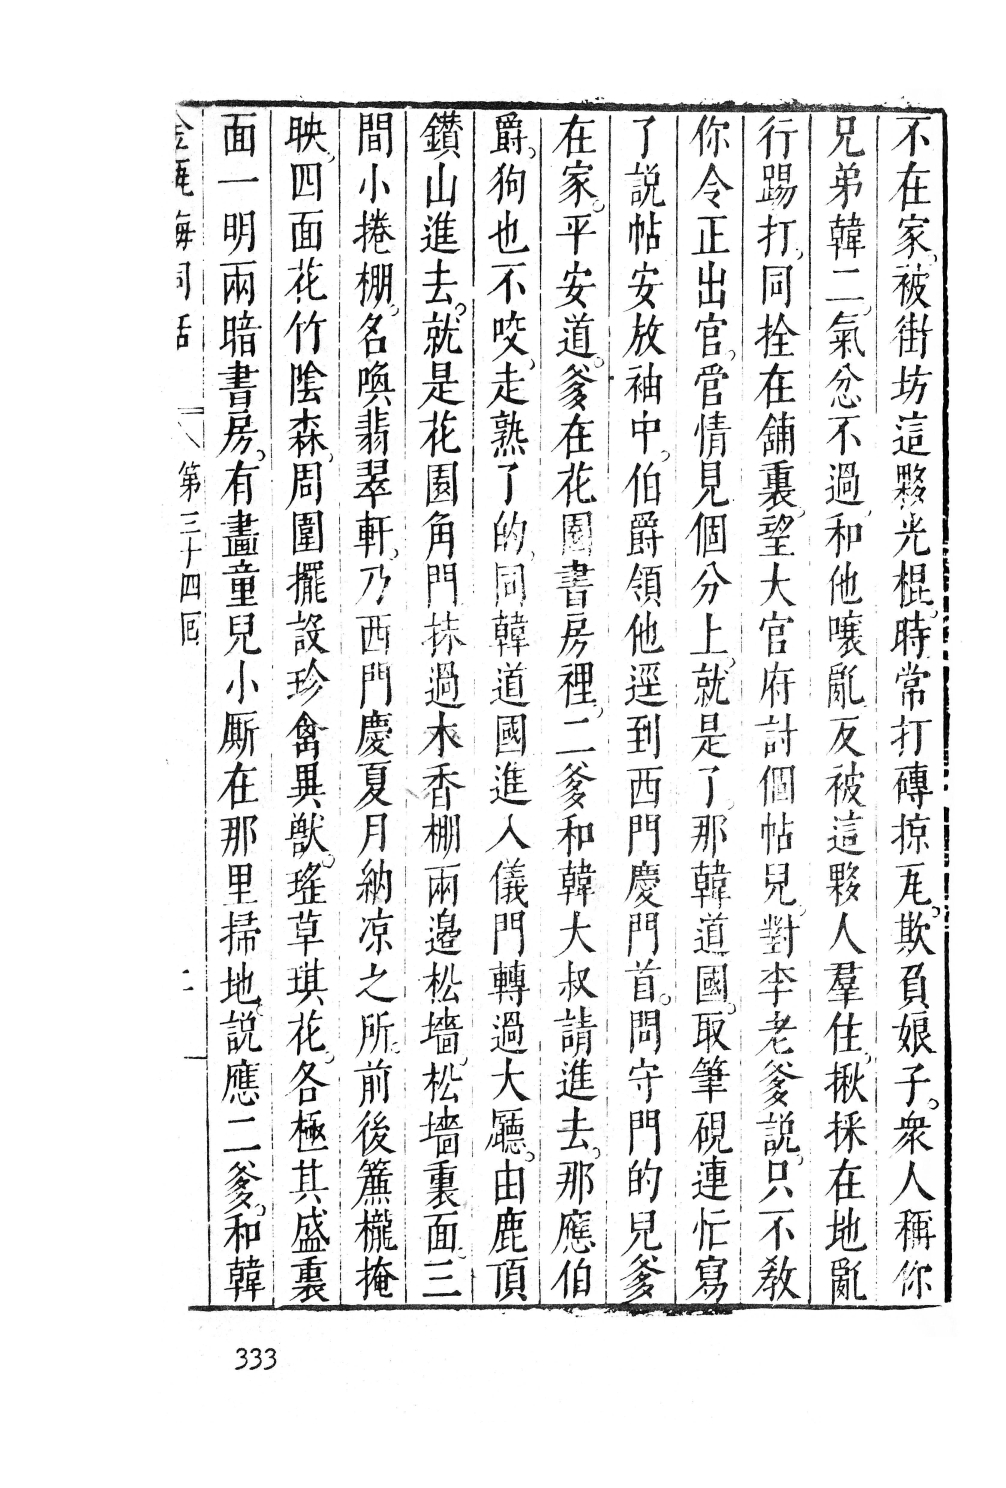 不在家。被街坊這夥光棍。時常打磚掠瓦。欺負娘子。衆人稱你
兄弟韓二。氣忿不過。和他嚷亂。反被這夥人羣住。揪採在地亂
行踢打。同拴在舖裏。望大官府討個帖兒。對李老爹說。只不教
你令正出官。管情見個分上。就是了。那韓道國。取筆硯連忙寫
了說帖安放袖中。伯爵領他逕到西門慶門首。問守門的兒爹
在家。平安道。爹在花園書房裡。二爹和韓大叔請進去。那應伯
爵。狗也不咬。走熟了的。同韓道國進入儀門轉過大廳。由鹿頂
鑚山進去。就是花園角門。抹過木香棚兩邊松墻。松墻裏面。三
間小捲棚。名喚翡翠軒。乃西門慶夏月納凉之所。前後簾櫳掩
映。四面花竹陰森。周圍擺設珍禽異獸。瑤草琪花。各極其盛裏
面一明兩暗書房。有畫童兒小厮在那里掃地。說應二爹。和韓
金瓶梅詞話 第三十四囘
333